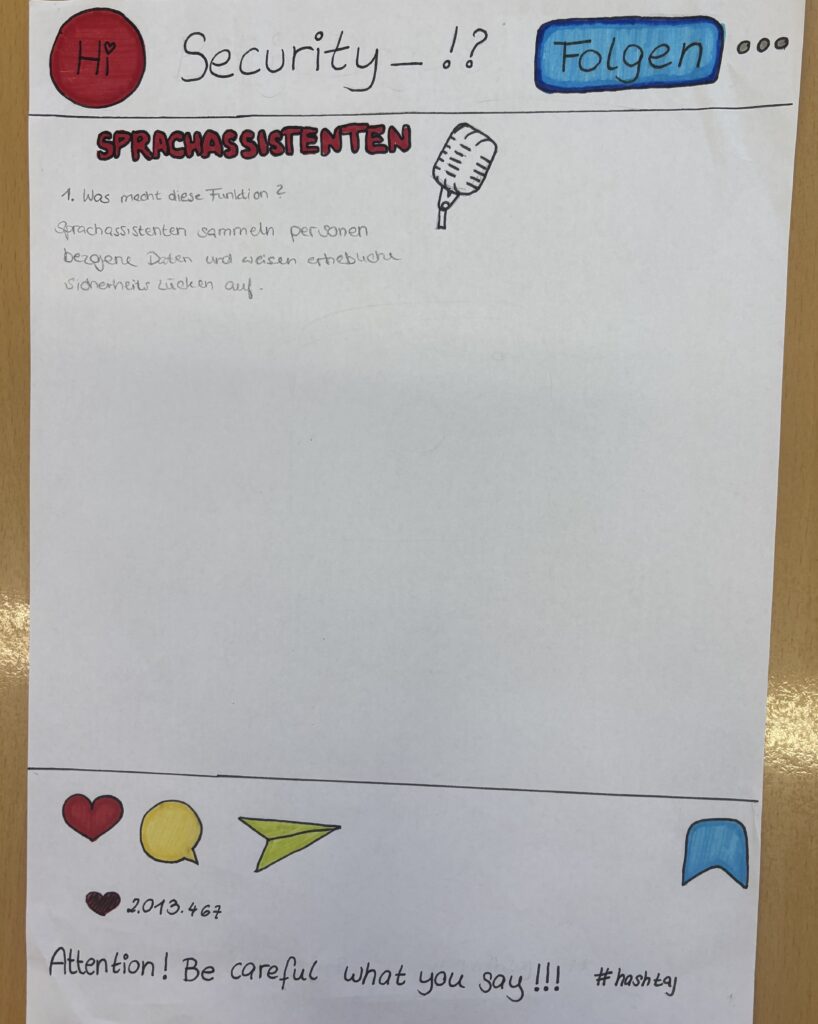 Hi Security_!? Folgen
SPRACHASSISTENTEN
1. Was macht diese Funktion?
Sprachassistenten sammeln personen
bezogene Daten und weisen erhebliche
Sicherheits Lücken auf.
2.013.467
Attention! Be careful what you say!!! #hashtaj